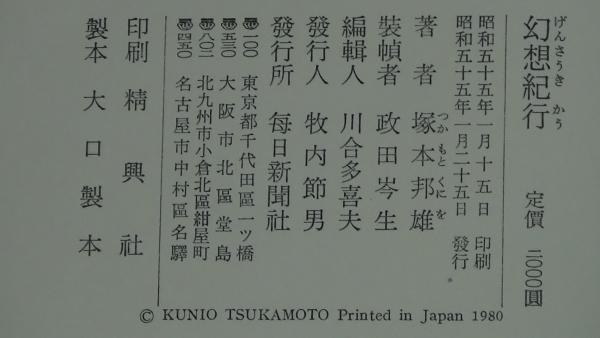 幻想紀行 定價 二〇〇〇圓
げんさうき かう
昭和五十五年一月十五日 印刷
昭和五十五年一月二十五日 發行
著者 塚本邦雄
つか もと くに を
裝幀者 政田岑生
編輯人 川合多喜夫
發行人 牧内節男
發行所 每日新聞社
〒一〇〇 東京都千代田區一ツ橋
〒五三〇 大阪市北區堂島
〒八〇二 北九州市小倉北區紺屋町
〒四五〇 名古屋市中村區名驛
印刷 精興社
製本 大口製本
© KUNIO TSUKAMOTO Printed in Japan 1980